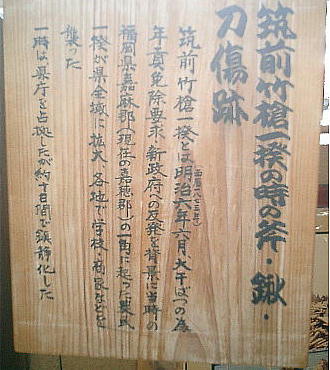 筑前竹槍一揆の時の斧・鍬・
刀傷跡
筑前竹槍一揆とは明治六年(西暦一八七三年)六月、大干ばつの為
年貢免除要求・新政府への反発を背景に当時の
福岡県嘉麻郡(現在の嘉穂郡)の一角に起った農民
一揆が県全域に拡大、各地で学校・商家などを
襲った
一時は県庁を占拠したが約十日間で鎮静化した